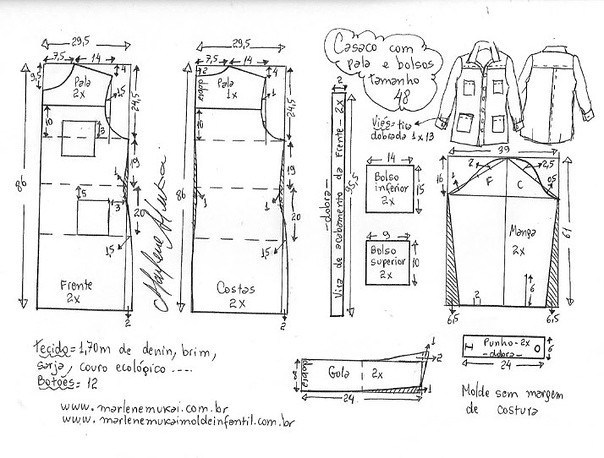 29,5
7,5
14
9,5
4
Pala
2x
1,5
24,5
10
3
86
1
19
5
3
20
1,5
Frente
2x
2
Marlene Mukai
29,5
7,5
14
2
4
dobra
Pala
1x
1
24,5
10
86
1
1
19
20
1,5
Costas
2x
2
Casaco com
pala e bolsos
tamanho
48
Viés=tira
dobrada 1x13
2
Vira de acabamento da Frente - 2x
-dobra-
85,5
14
Bolso
inferior
2x
15
9
Bolso
superior
2x
10
39
16
2
1
F
C
2,5
0,5
1
Manga
2x
61
6
2
6,5
6,5
Punho-2x
-dobra-
6
24
dobra
8
Gola
2x
1
2
1
24
Tecido=1,70m de denin, brim,
sarja, couro ecológico ....
Botões= 12
www.marlenemukai.com.br
www.marlenemukaimoldeinfantil.com.br
Molde sem margem
de costura